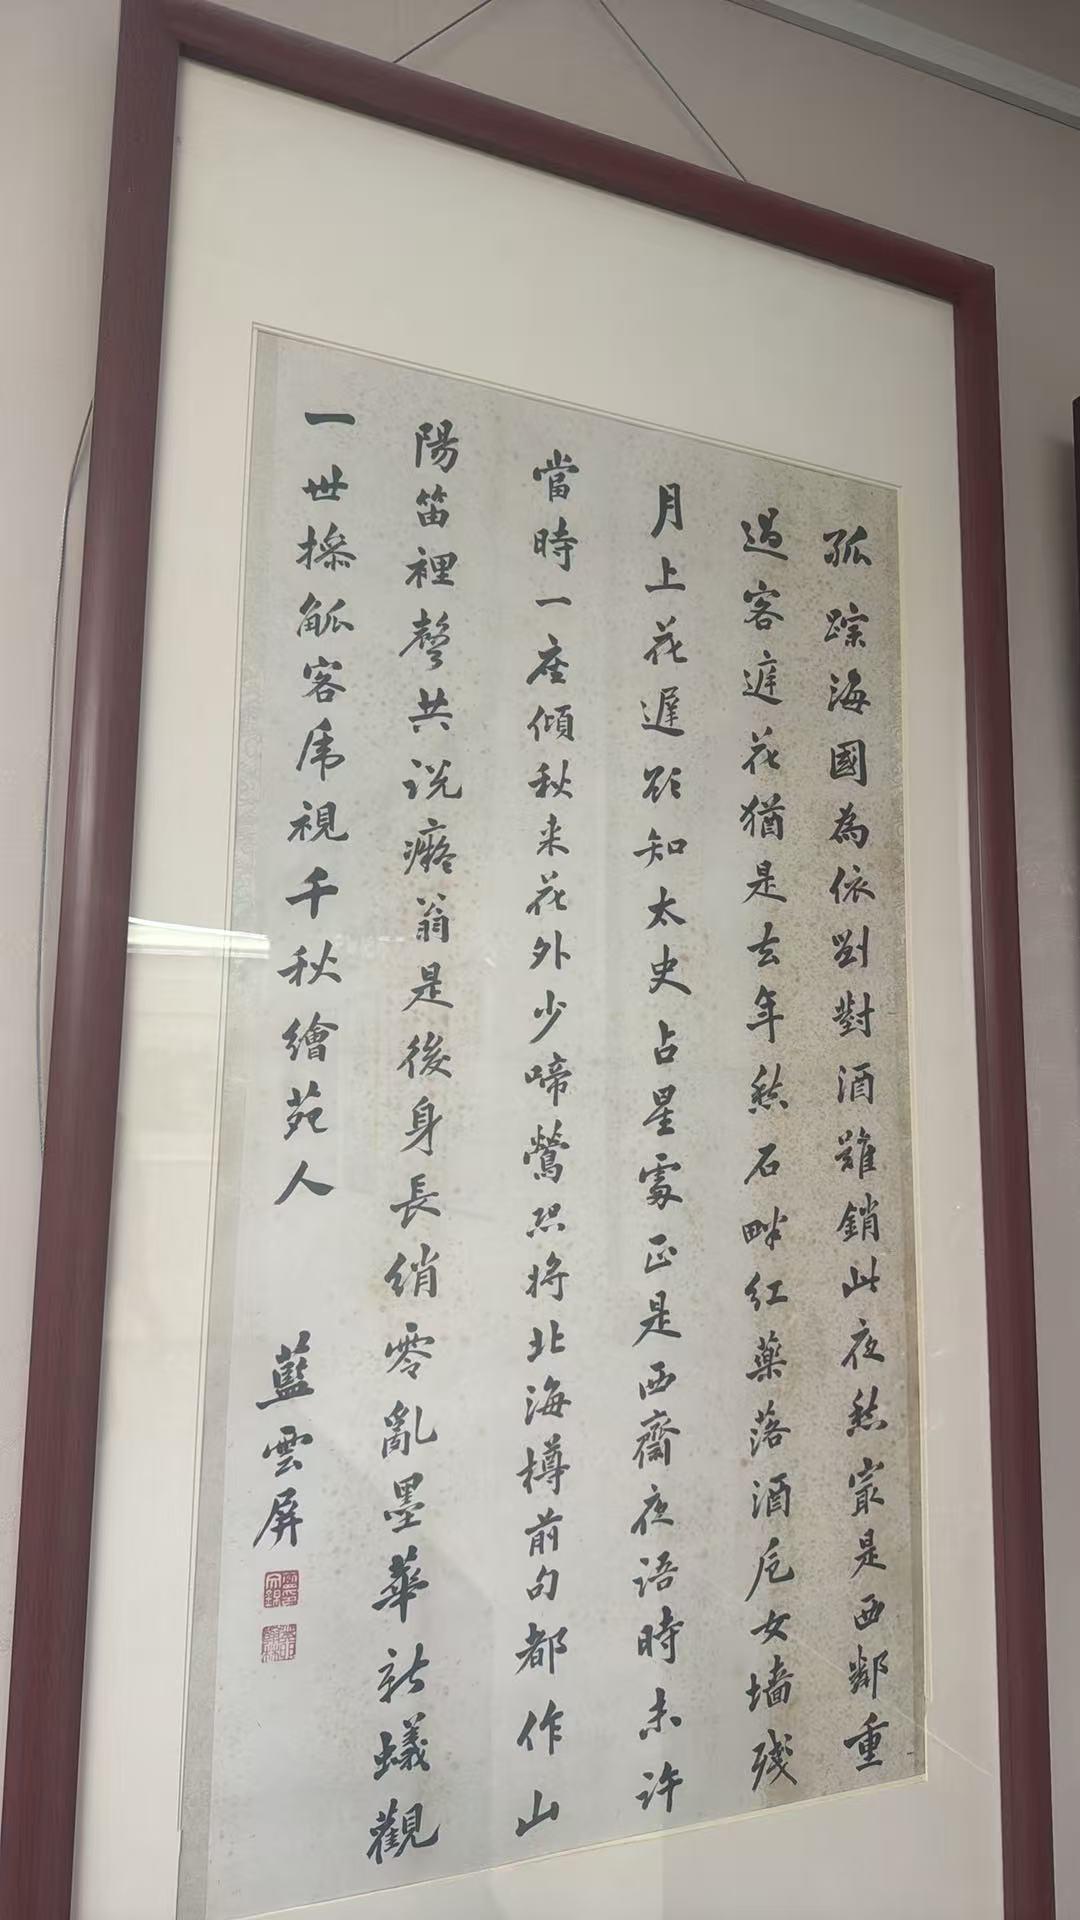 孤踪海國為依劉對酒難銷此夜愁寂是西鄰重
過客遊花猶是去年愁石畔紅藥落酒卮女墻殘
月上花遲欲知太史占星處正是西齋夜語時未許
當時一座傾秋来花外少啼鶯恐將北海樽前句都作山
陽笛裡聲共说癡翁是後身長绡零亂墨華新蟻觀
一世操觚客虎視千秋繪苑人
藍雲屏